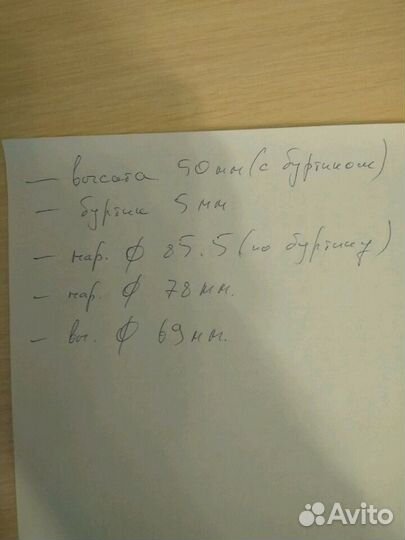 — высота 50 мм (с буртиком)
— буртик 5 мм
— нар. ф 85.5 (по буртику)
— нар. ф 78 мм.
— вн. ф 69 мм.
Avito